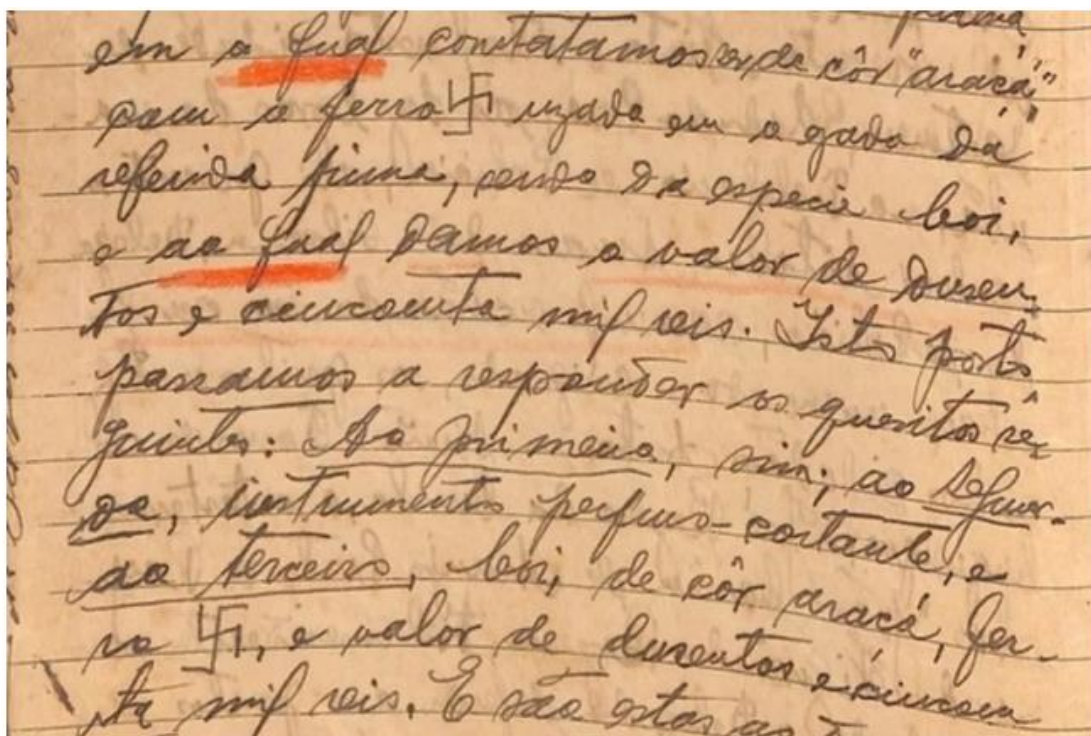 em o qual constatamos ser de côr "araçá"
com o ferro 卐 uzado em o gado da
referida firma, sendo da especie boi,
e ao qual damos o valor de duzen-
tos e cincoenta mil reis. Isto posto
passamos a responder os quesitos se-
guintes: Ao primeiro, sim; ao segun-
do, instrumento perfuro-cortante, e
ao terceiro, boi, de côr araçá, fer-
ro 卐, e valor de duzentos e cincoen
ta mil reis. E são estas as